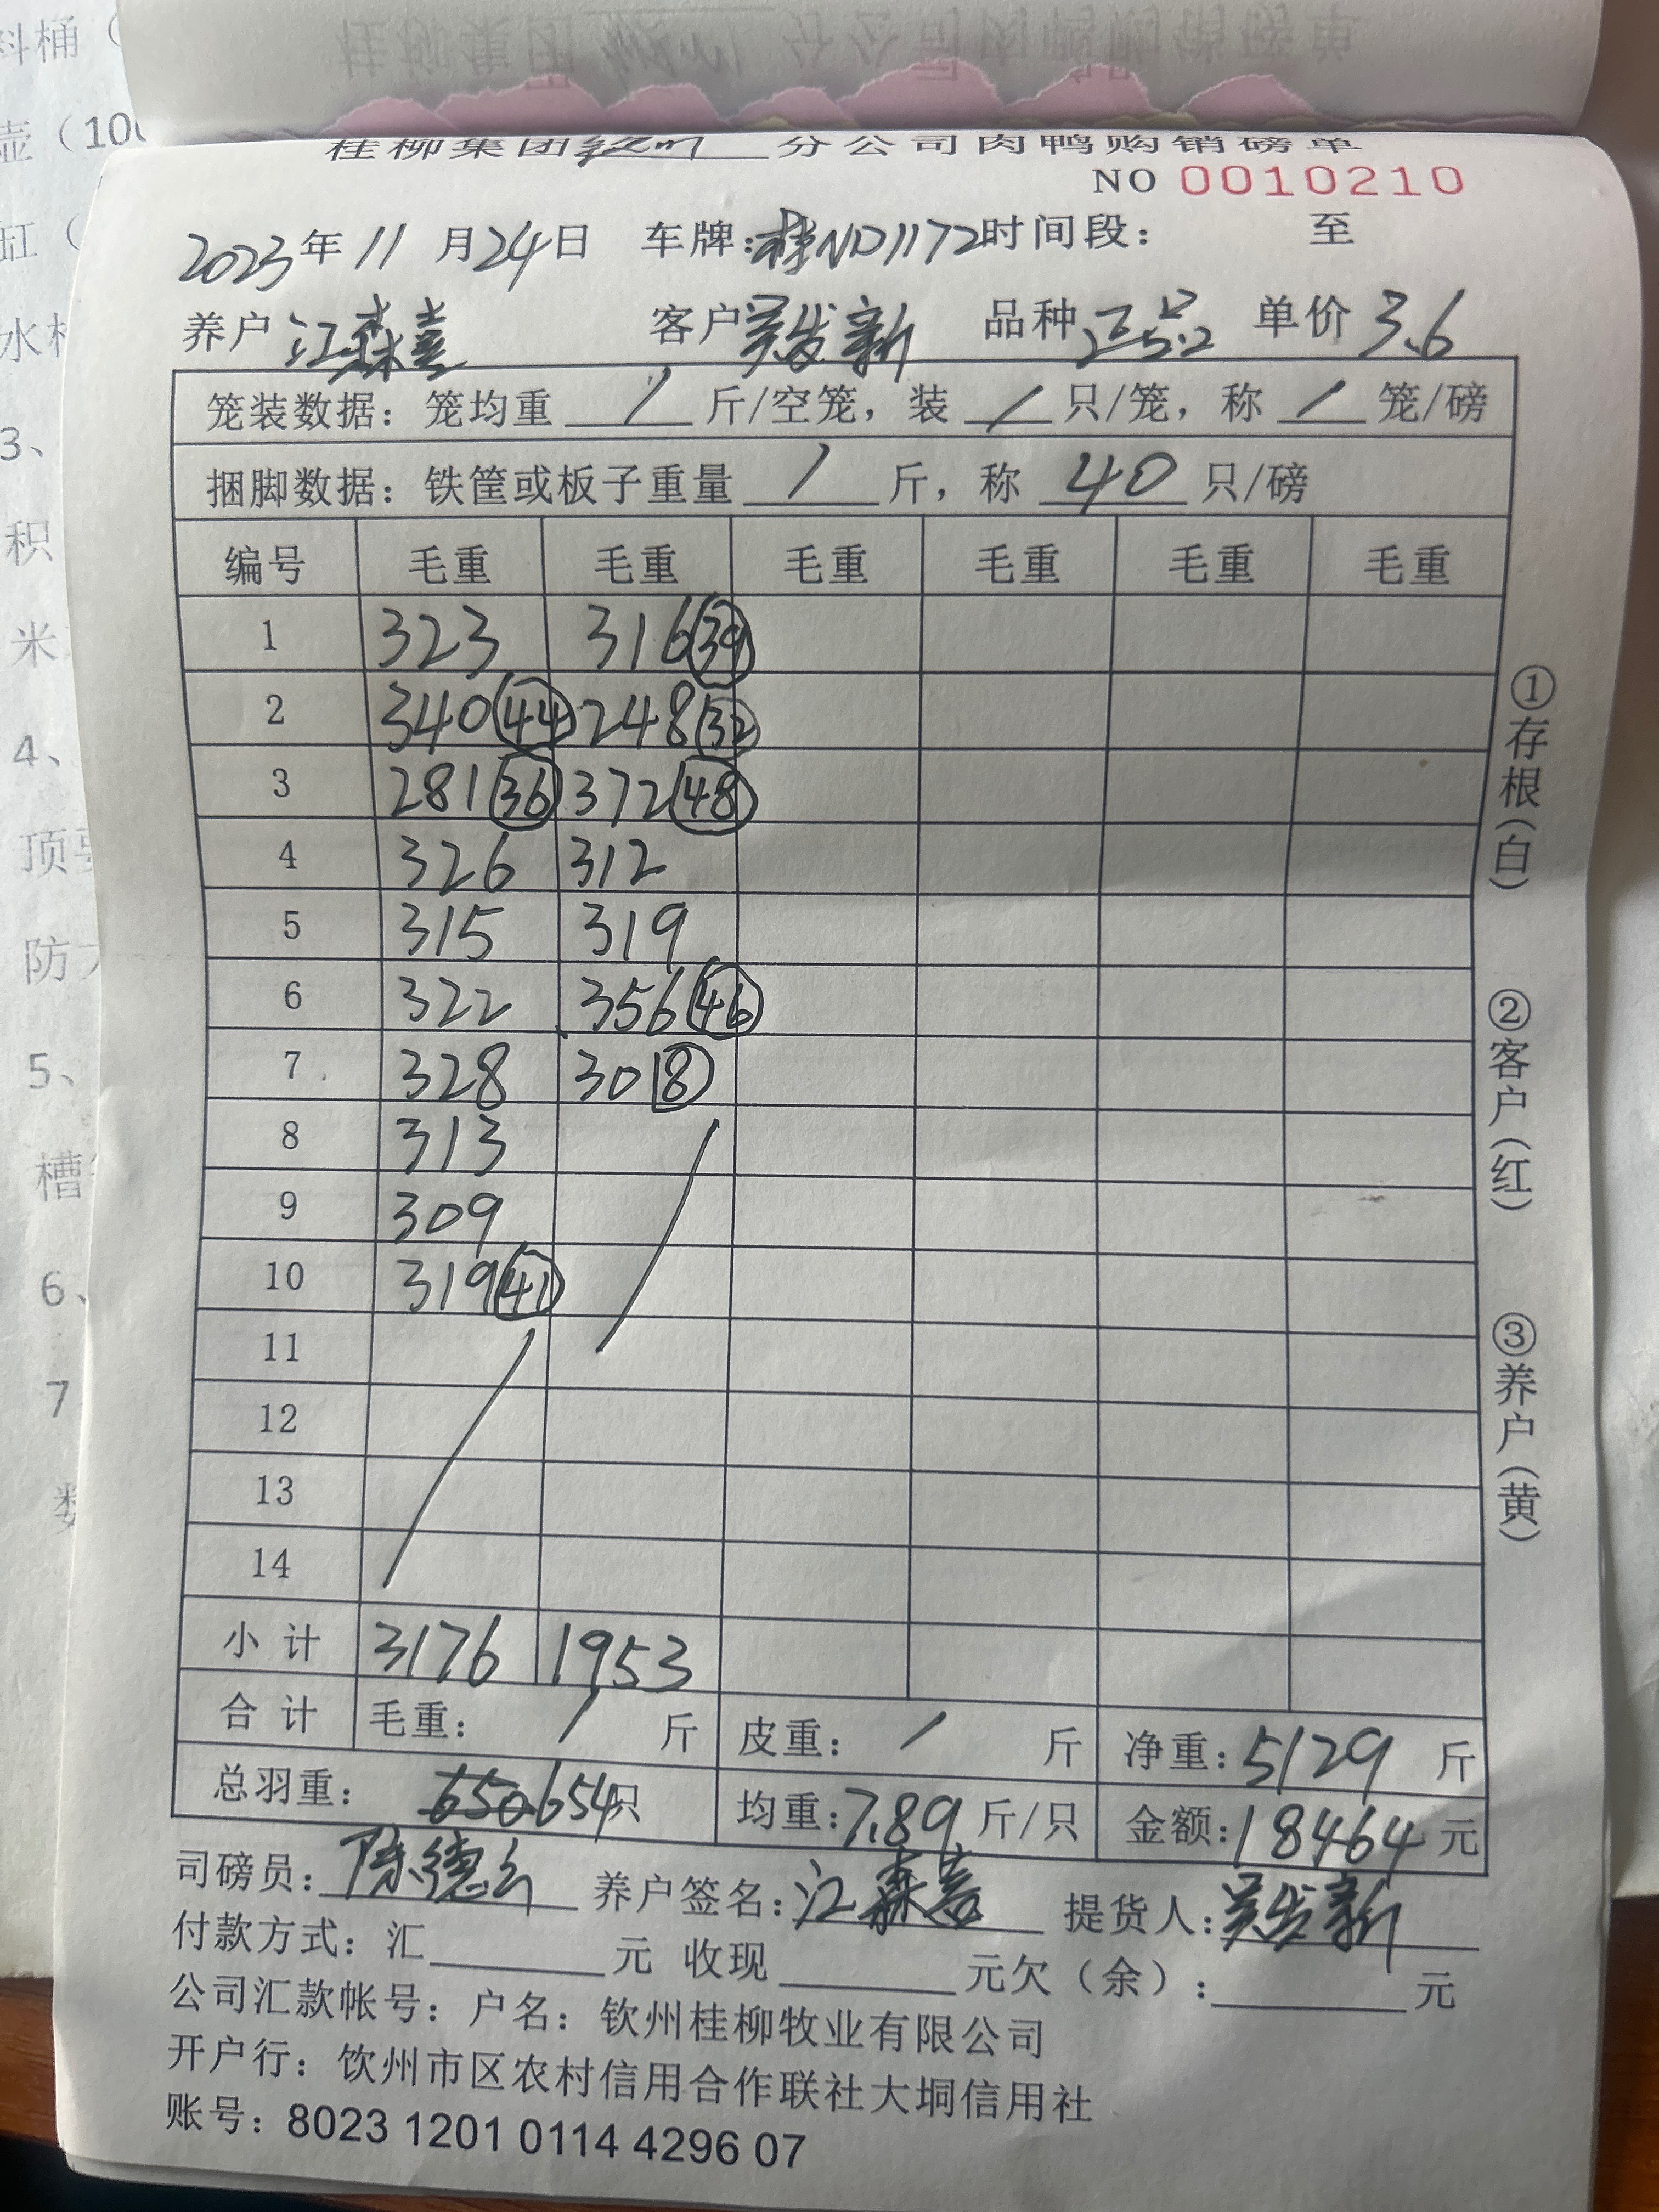 桂柳集团 分公司肉鸭购销磅单
NO 0010210
2023年11月24日 车牌:桂ND1172时间段: 至
养户 江森喜 客户 吴发新 品种 正品 单价 3.6
笼装数据: 笼均重 / 斤/空笼, 装 / 只/笼, 称 / 笼/磅
捆脚数据: 铁筐或板子重量 / 斤, 称 40 只/磅
编号 毛重 毛重 毛重 毛重 毛重 毛重
1 323 316 (39)
2 340 (44) 248 (32)
3 281 (36) 372 (48)
4 326 312
5 315 319
6 322 356 (46)
7 328 30 (8)
8 313
9 309
10 319 (41)
11
12
13
14
小计 3176 1953
合计 毛重: / 斤 皮重: / 斤 净重: 5129 斤
总羽重: 650 654只 均重: 7.89 斤/只 金额: 18464 元
司磅员: 陈德 养户签名: 江森喜 提货人: 吴发新
付款方式: 汇 元 收现 元欠(余): 元
公司汇款帐号: 户名: 钦州桂柳牧业有限公司
开户行: 钦州市区农村信用合作联社大垌信用社
账号: 8023 1201 0114 4296 07
①存根(白)
②客户(红)
③养户(黄)
料桶(
壶(10
缸(
水
3、
积
米
4、
顶
防
5、
槽
6、
7